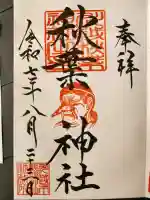 奉拝
秋葉神社
令和七年八月二十三日